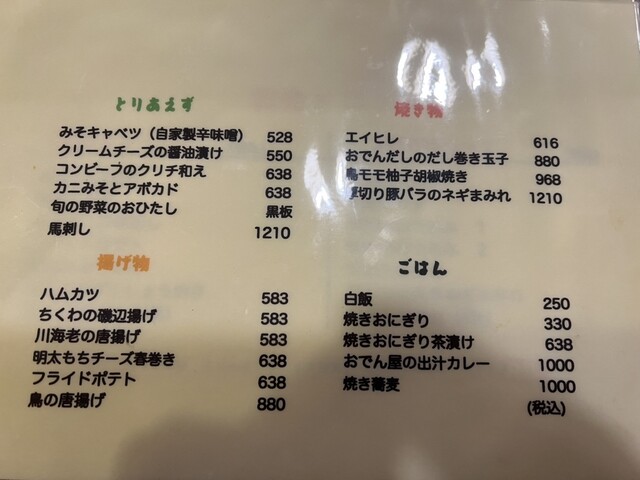 とりあえず
みそキャベツ（自家製辛味噌） 528
クリームチーズの醤油漬け 550
コンビーフのクリチ和え 638
カニみそとアボカド 638
旬の野菜のおひたし 黒板
馬刺し 1210
揚げ物
ハムカツ 583
ちくわの磯辺揚げ 583
川海老の唐揚げ 583
明太もちチーズ春巻き 638
フライドポテト 638
鳥の唐揚げ 880
焼き物
エイヒレ 616
おでんだしのだし巻き玉子 880
鳥モモ柚子胡椒焼き 968
厚切り豚バラのネギまみれ 1210
ごはん
白飯 250
焼きおにぎり 330
焼きおにぎり茶漬け 638
おでん屋の出汁カレー 1000
焼き蕎麦 1000
(税込)